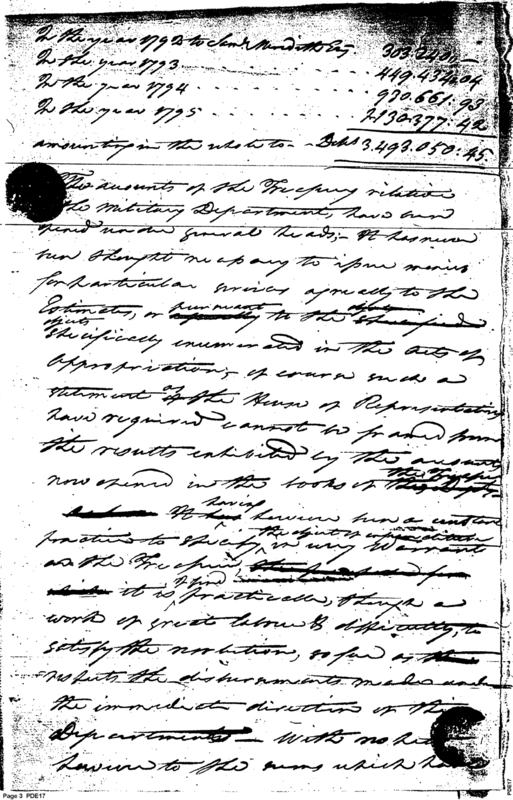 In the year 1792 to Saml Meredith Esq 303.2400,—
In the year 1793 . . . . . . 449.434.04
In the year 1794 . . . . . . 930.661.93
In the year 1795 . . . . . . 2130.377.42
amounting in the whole to — Dolls 3.493.050.45
The accounts of the Treasury relative
the Military Department, have been
opened under general heads; — It has never
been thought necessary to issue monies
for particular services agreeably to the
Estimates, or pursuant to the objects
objects
Specifically enumerated in the Acts of
Appropriation; of course such a
statement as the House of Representatives
have required cannot be framed from
the results exhibited by the accounts
now opened in the books of the Treasury
It having however been a constant
practice to specify the object of expenditure in every Warrant
on the Treasury,
it is practicable, though a
work of great labour & difficulty, to
satisfy the resolution, so far as
respects the disbursements made under
the immediate direction of this
Department — With
however to the sums which have
Page 3 PDE17
PDE17